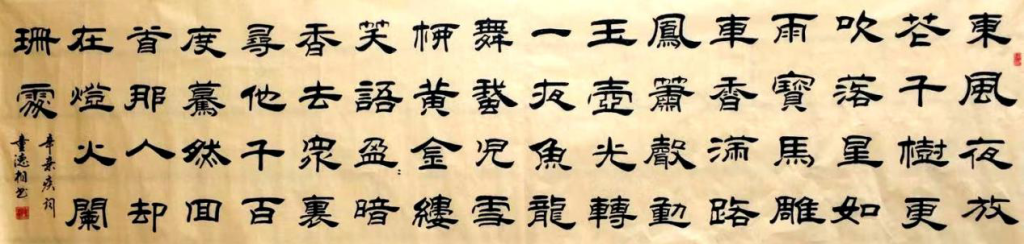 東風夜放
花千樹更
吹落星如
雨寶馬雕
車香滿路
鳳簫聲動
玉壺光轉
一夜魚龍
舞蛾兒雪
柳黃金縷
笑語盈暗
香去眾裏
尋他千百
度驀然回
首那人却
在燈火闌
珊處
辛棄疾詞
童德相书